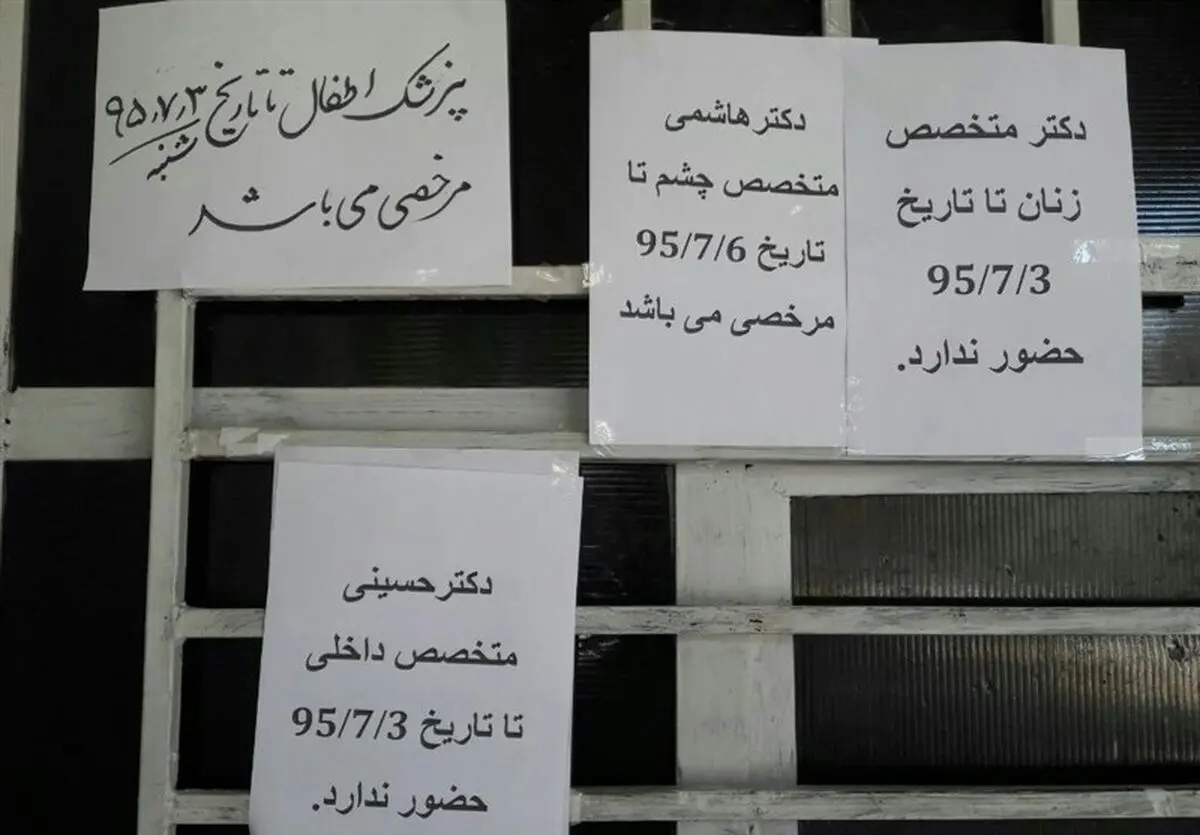 پزشک اطفال تا تاریخ ۹۵،۷،۳
شنبه
مرخصی می باشد
دکتر متخصص
زنان تا تاریخ
95/7/3
حضور ندارد.
دکترهاشمی
متخصص چشم تا
تاریخ 95/7/6
مرخصی می باشد
دکترحسینی
متخصص داخلی
تا تاریخ 95/7/3
حضور ندارد.